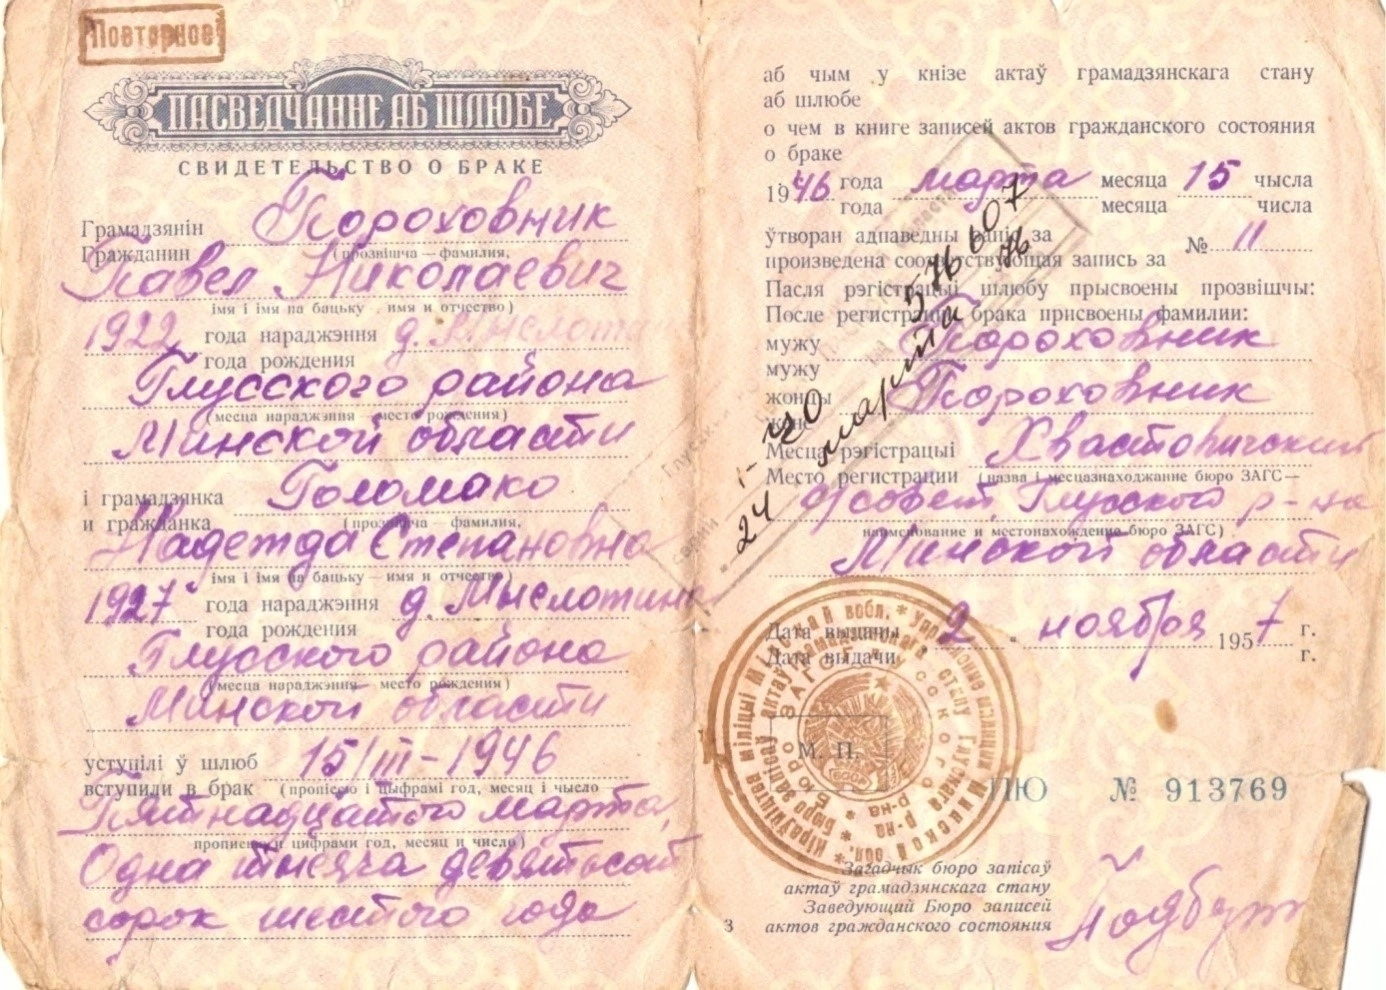 Повторное
ПАСВЕДЧАННЕ АБ ШЛЮБЕ
СВИДЕТЕЛЬСТВО О БРАКЕ
Грамадзянін Пороховник
Гражданин (прозвішча — фамилия,
Павел Николаевич
імя і імя па бацьку - имя и отчество)
1922 года нараджэння д. Мыслоти
года рождения
Глусского района
(месца нараджэння — место рождения)
Минской области
і грамадзянка Голомако
и гражданка (прозвішча — фамилия,
Надежда Степановна
імя і імя па бацьку — имя и отчество)
1927 года нараджэння д. Мыслотина
года рождения
Глусского района
(месца нараджэння — место рождения)
Минской области
уступілі ў шлюб 15/III-1946
вступили в брак (прописью і цыфрамі год, месяц і чысло —
Пятнадцатого марта,
прописью и цифрами год, месяц и число)
Одна тысяча девятьсот
сорок шестого года
аб чым у кнізе актаў грамадзянскага стану
аб шлюбе
о чем в книге записей актов гражданского состояния
о браке
1946 года марта месяца 15 чысла
года месяца числа
ўтворан адпаведны запіс за № 11
произведена соответствующая запись за
Пасля рэгістрацыі шлюбу прысвоены прозвішчы:
После регистрации брака присвоены фамилии:
мужу Пороховник
мужу
жонцы Пороховник
жене
Месца рэгістрацыі Хвастовичский
Место регистрации (назва і месцазнаходжанне бюро ЗАГС —
с/совет, Глусского р-на
наименование и местонахождение бюро ЗАГС)
Минской области
576607
24 марта 76
Дата выдачы 2 ноября 1957 г.
Дата выдачи г.
М. П.
ПЮ № 913769
Загадчык бюро запісаў
актаў грамадзянскага стану
Заведующий Бюро записей
3 актов гражданского состояния